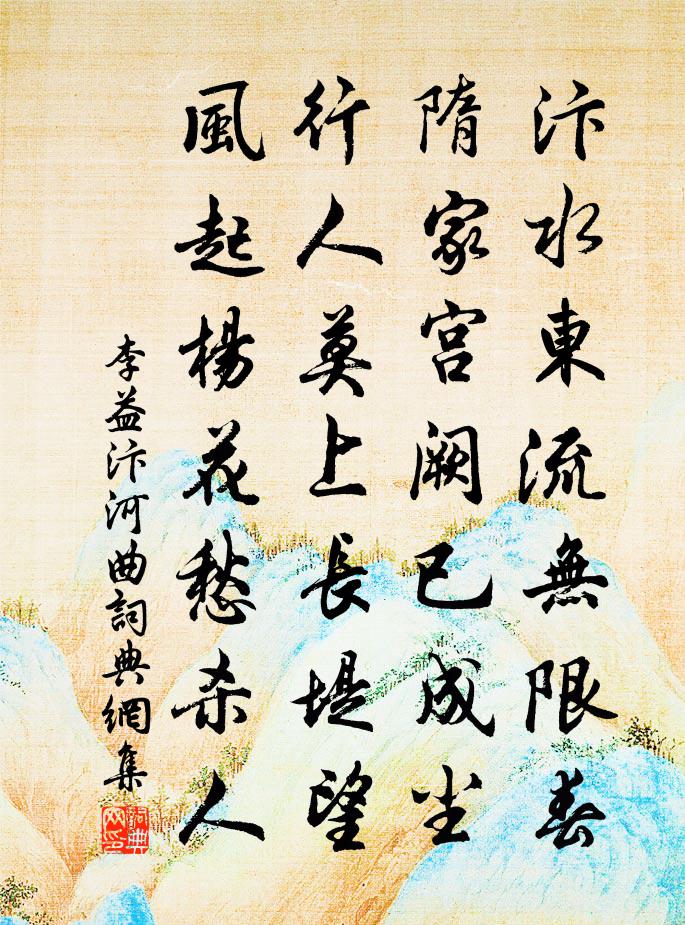 汴水東流無限春
隋家宮闕已成尘
行人莫上長堤望
風起楊花愁杀人
李益汴河曲詞典網集
詞典網印